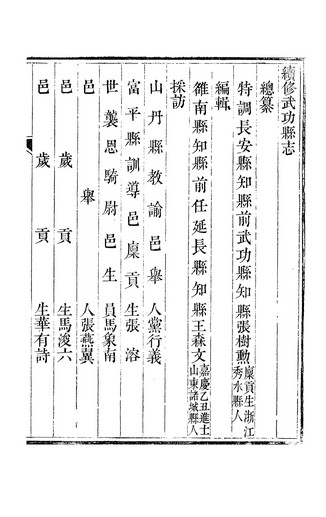 續修武功縣志
總纂
特調長安縣知縣前武功縣知縣張樹勲廩貢生浙江秀水縣人
編輯
雒南縣知縣前任延長縣知縣王森文嘉慶乙丑進士山東諸城縣人
採訪
山丹縣教諭邑舉人黨行義
富平縣訓導邑廩貢生張溶
世襲恩騎尉邑生員馬象南
邑舉人張燕翼
邑歲貢生馬浚六
邑歲貢生華有詩